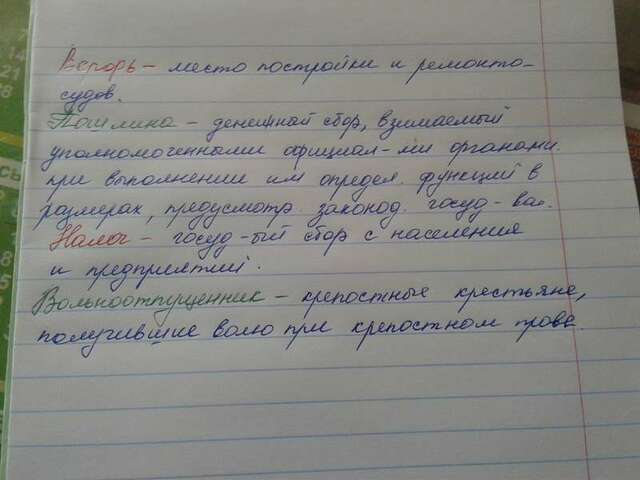 Верфь – место постройки и ремонта
судов.
Пошлина – денежной сбор, взимаемый
уполномоченными официал-ми органами.
при выполнении им определ. функций в
размерах, предусмотр. законод. госуд-ва.
Налог – госуд-ый сбор с населения
и предприятий.
Вольноотпущенник – крепостные крестьяне,
получившие волю при крепостном праве